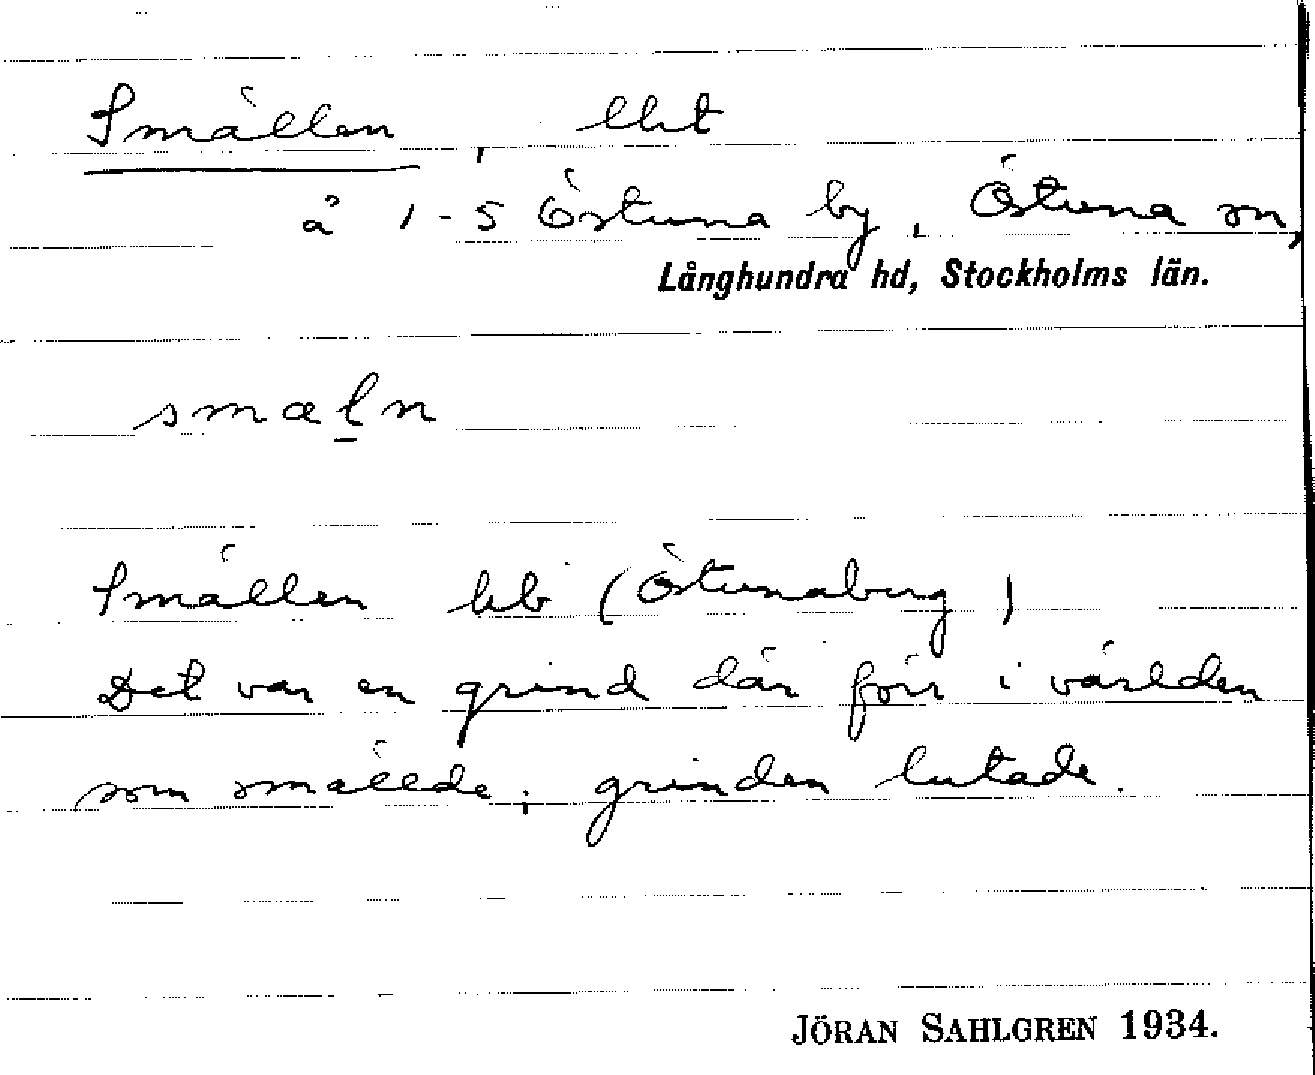 Smällen, lht
å 1-5 Östuna by, Östuna sn,
Långhundra hd, Stockholms län.
smæḻn
Smällen hb (Östunaberg)
Det var en grind där förr i världen
som smällde; grinden lutade.
JÖRAN SAHLGREN 1934.